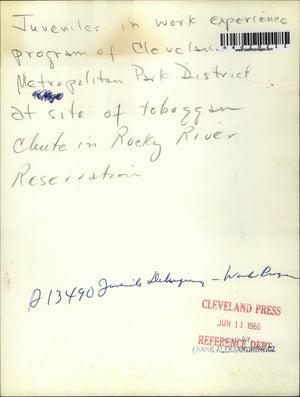 Juveniles in work experience
program of Clevelan
Metropolitan Park District
at site of toboggan
Chute in Rocky River
Reservation
A13490 Juvenile Delinquency - Work Program
CLEVELAND PRESS
JUN 11 1966
REFERENCE DEPT.
BY
FRANK ALEKSANDROWICZ